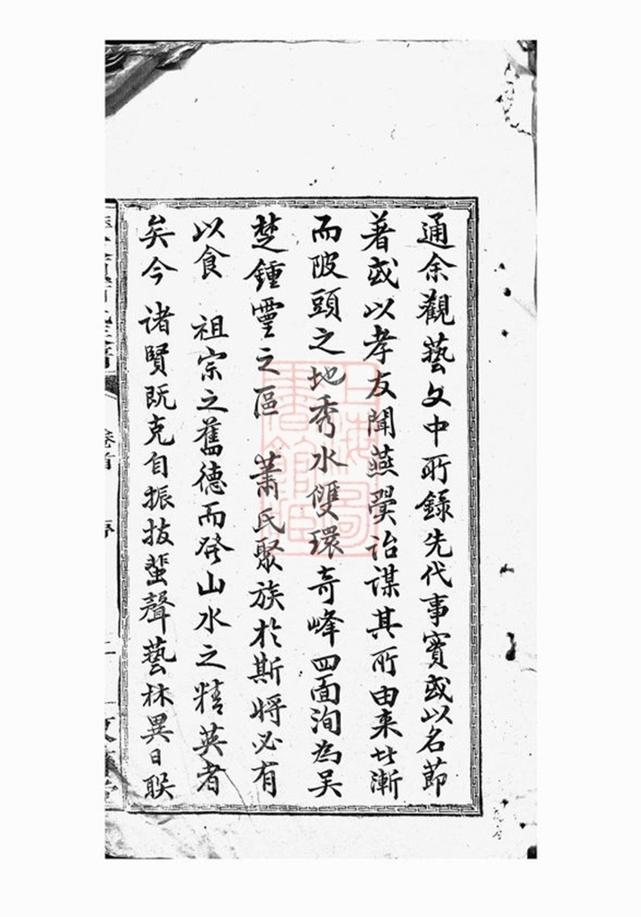 通余觀藝文中所錄先代事實或以名節
著或以孝友聞燕翼詒謀其所由来廿漸
而陂頭之地秀水雙環奇峰四面洵為吴
楚鍾靈之區 蕭氏聚族於斯將必有
以食 祖宗之舊德而發山水之精英者
矣今 諸賢既克自振拔蜚聲藝林異日聯
卷首 序
二
上海圖書館藏